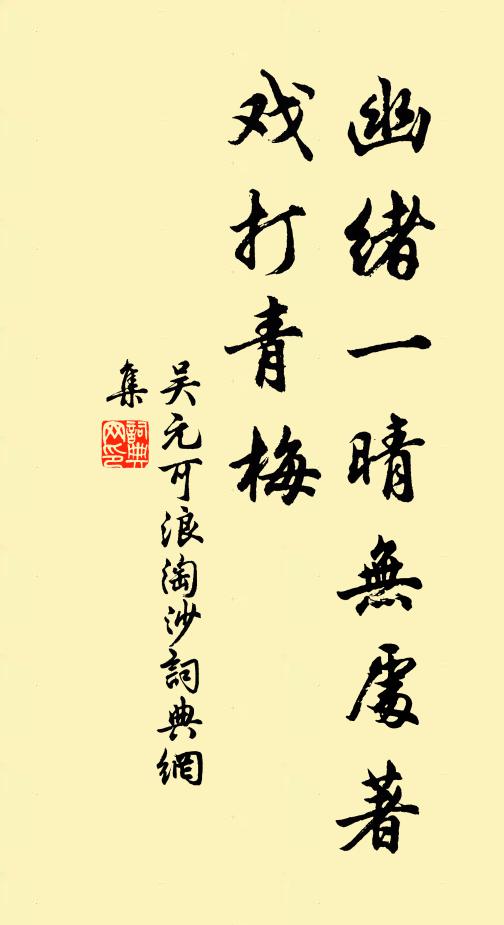 幽緒一晴無處著
戏打青梅
吴元可浪淘沙詞典網
集
詞典
网印